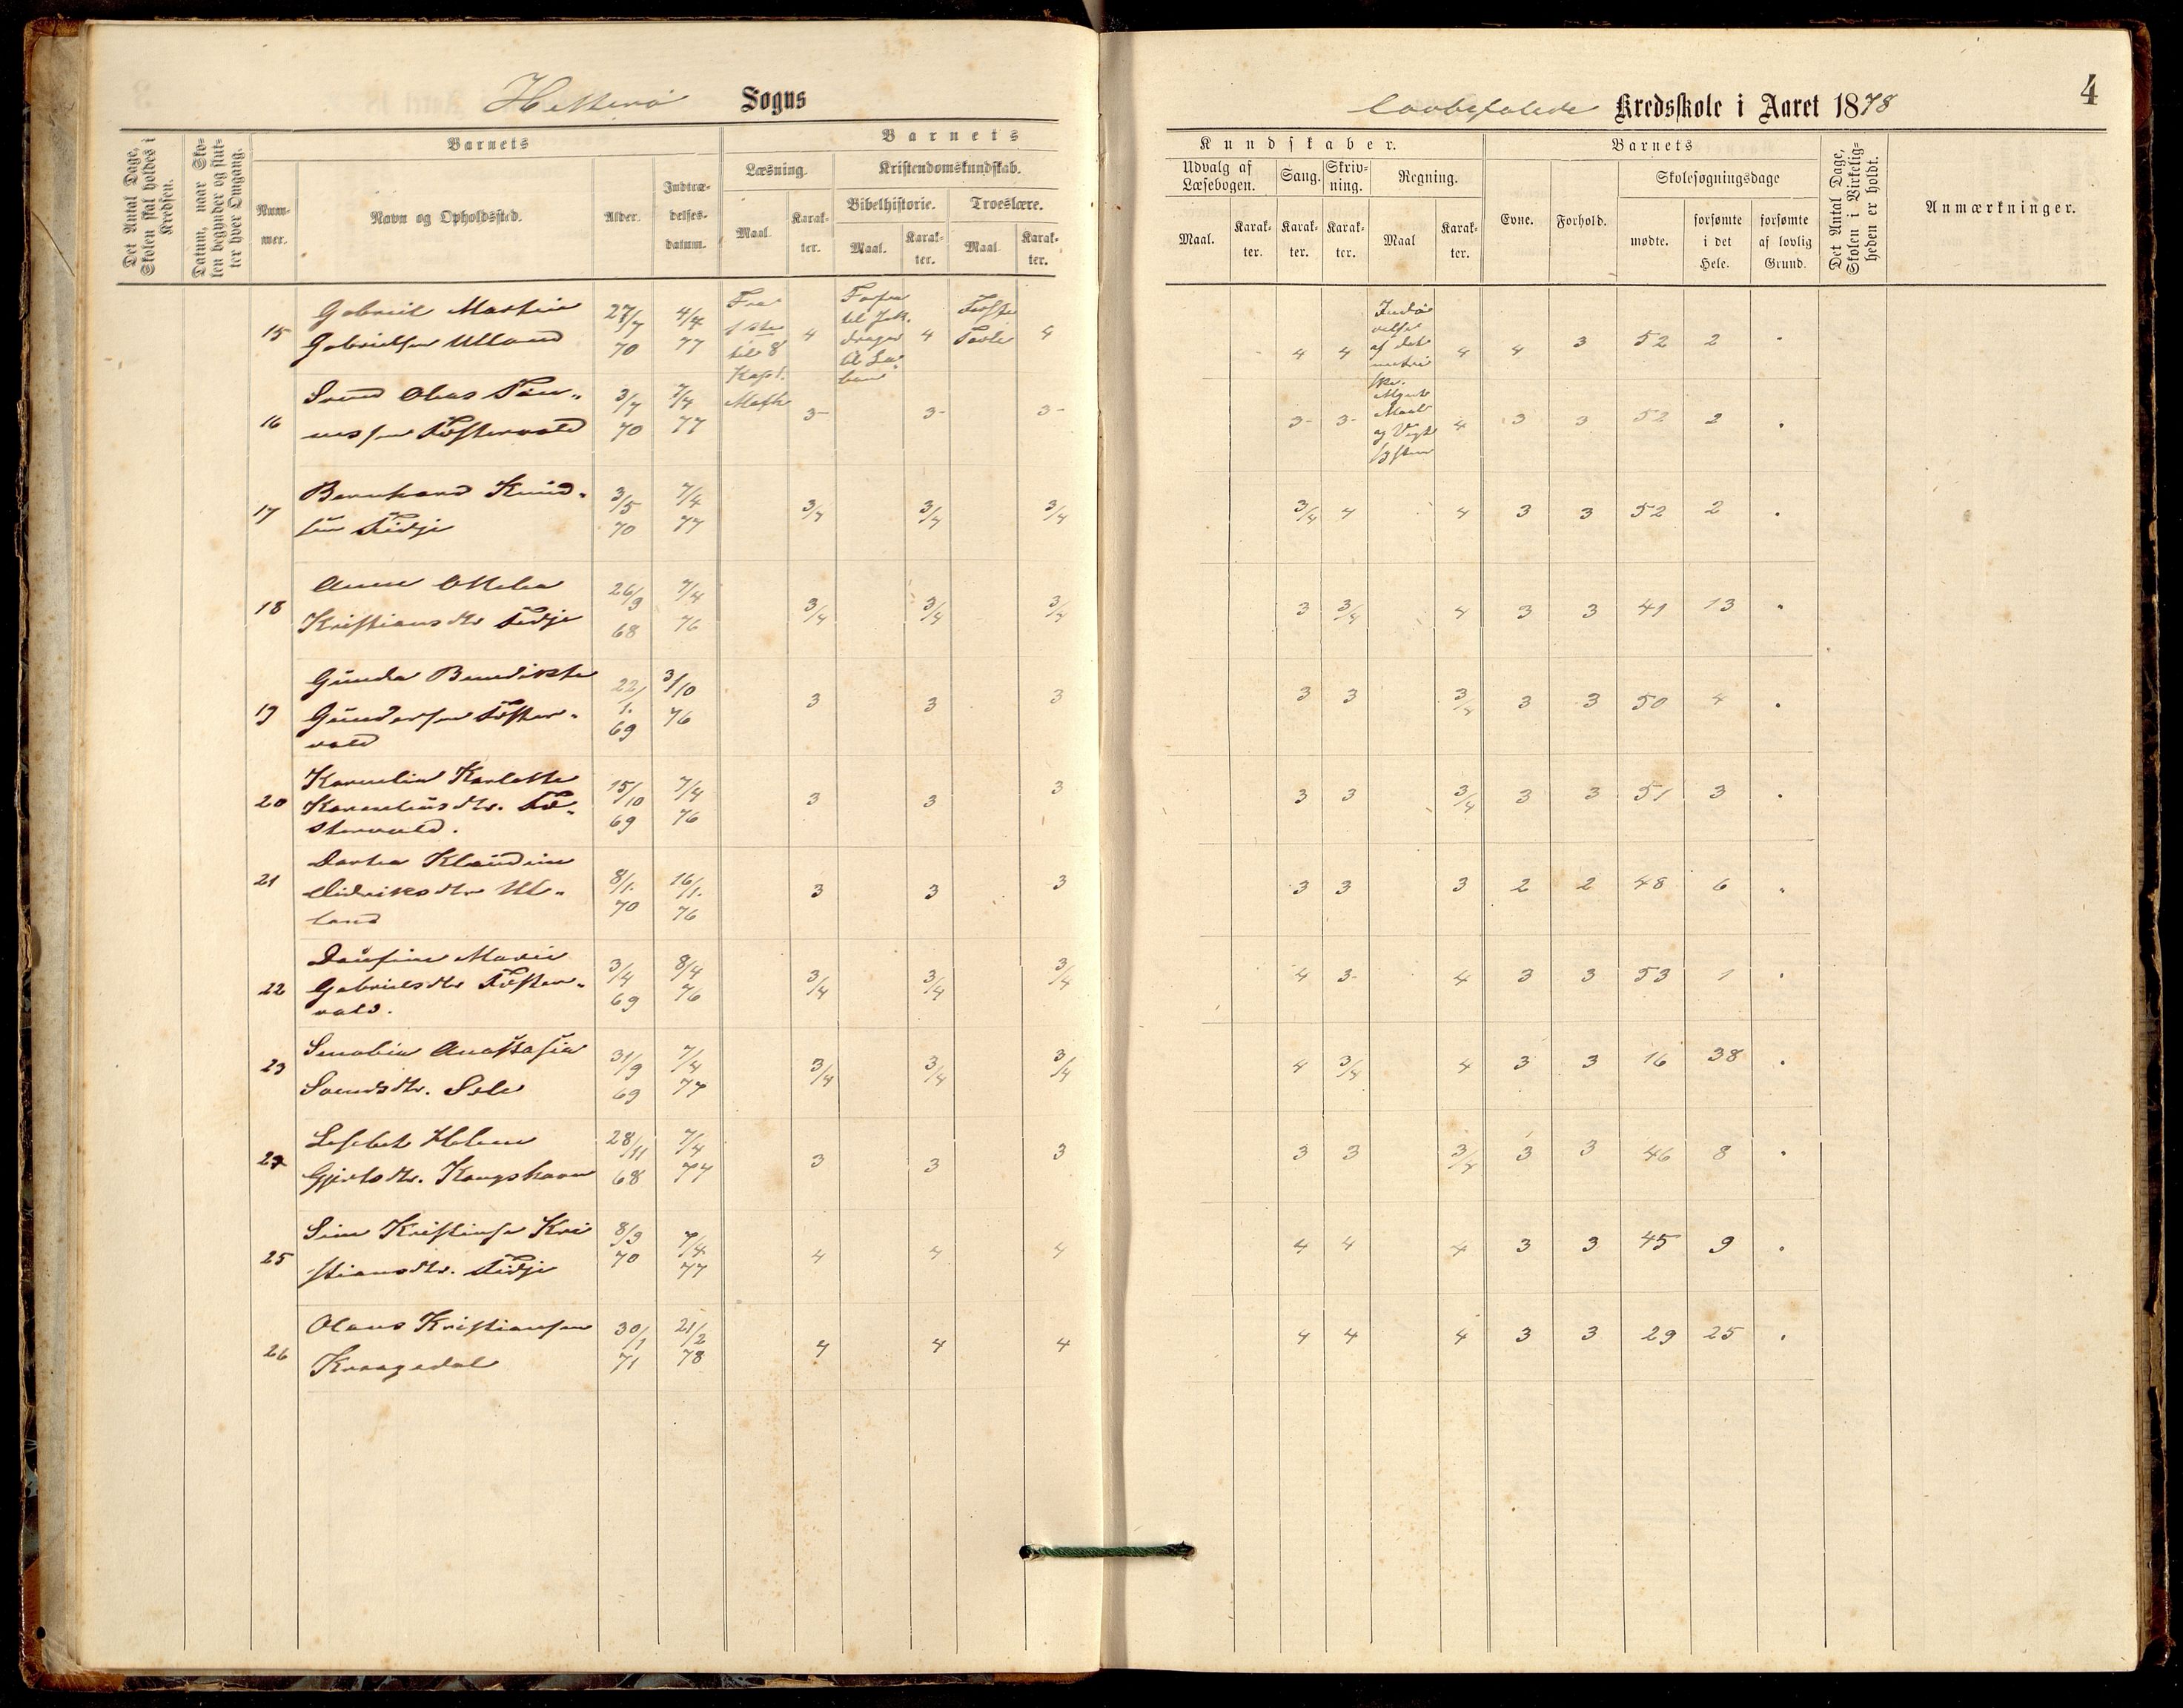 Hitterø Sogns
lovbefalede Kredsskole i Aaret 1878
4
Det Antal Dage, Skolen skal holdes i Kredsen.
Datum, naar Skolen begynder og slutter hver Omgang.
Barnets
Nummer.
Navn og Opholdssted.
Alder.
Indtrædelsesdatum.
Barnets
Læsning.
Maal
Karakter.
Kristendomskundskab.
Bibelhistorie.
Maal.
Karakter.
Troeslære.
Maal
Karakter.
Kundskaber.
Udvalg af Læsebogen.
Maal.
Karakter.
Sang.
Karakter.
Skrivning.
Karakter.
Regning.
Maal
Karakter.
Barnets
Evne.
Forhold.
Skolesøgningsdage
mødte.
forsømte i det Hele.
forsømte af lovlig Grund.
Det Antal Dage, Skolen i Virkeligheden er holdt.
Anmærkninger.
15 Gabriel Martin Gabrielsen Ulland 27/7 70 4/4 77 Fra 1ste til 8 Kapt. 4 til 4 Første Parti 4 4 4 4 4 3 52 2 "
16 Svend Olius Tønnessen Fostervold 3/7 70 7/4 77 3- 3- 3- 3- 3- Maal og Vægt 4 3 3 52 2 "
17 Bernhard Knudsen Fidje 3/5 70 7/4 77 3/4 3/4 3/4 3/4 4 4 3 3 52 2 "
18 Anne Otelia Kristiansdtr Fidje 26/9 68 7/4 76 3/4 3/4 3/4 3 3/4 4 3 3 41 13 "
19 Gunda Bendikte Gundersen Fostervold 22/1. 69 3/10 76 3 3 3 3 3 3/4 3 3 50 4 "
20 Kornelia Karlotte Korneliusdtr. Fostervold. 15/10 69 7/4 76 3 3 3 3 3 3/4 3 3 51 3 "
21 Dortea Klaudine Didriksdtr Ulland 8/1. 70 16/1. 76 3 3 3 3 3 3 2 2 48 6 "
22 Marie Gabrielsdtr Fostervold. 3/4 69 8/4 76 3/4 3/4 3/4 4 3- 4 3 3 53 1 "
23 Senobia Anastasia Svendsdtr. Sele 31/9 69 7/4 77 3/4 3/4 3/4 4 3/4 4 3 3 16 38 "
24 Lisebet Helene Gjertsdtr. Kongshavn 28/11 68 7/4 77 3 3 3 3 3 3/4 3 3 46 8 "
25 Sine Kristine Kristiansdtr. Fidje 8/9 70 7/4 77 4 4 4 4 4 4 3 3 45 9 "
26 Olaus Kristiansen Kraagedal 30/1 71 21/2 78 4 4 4 4 4 4 3 3 29 25 "